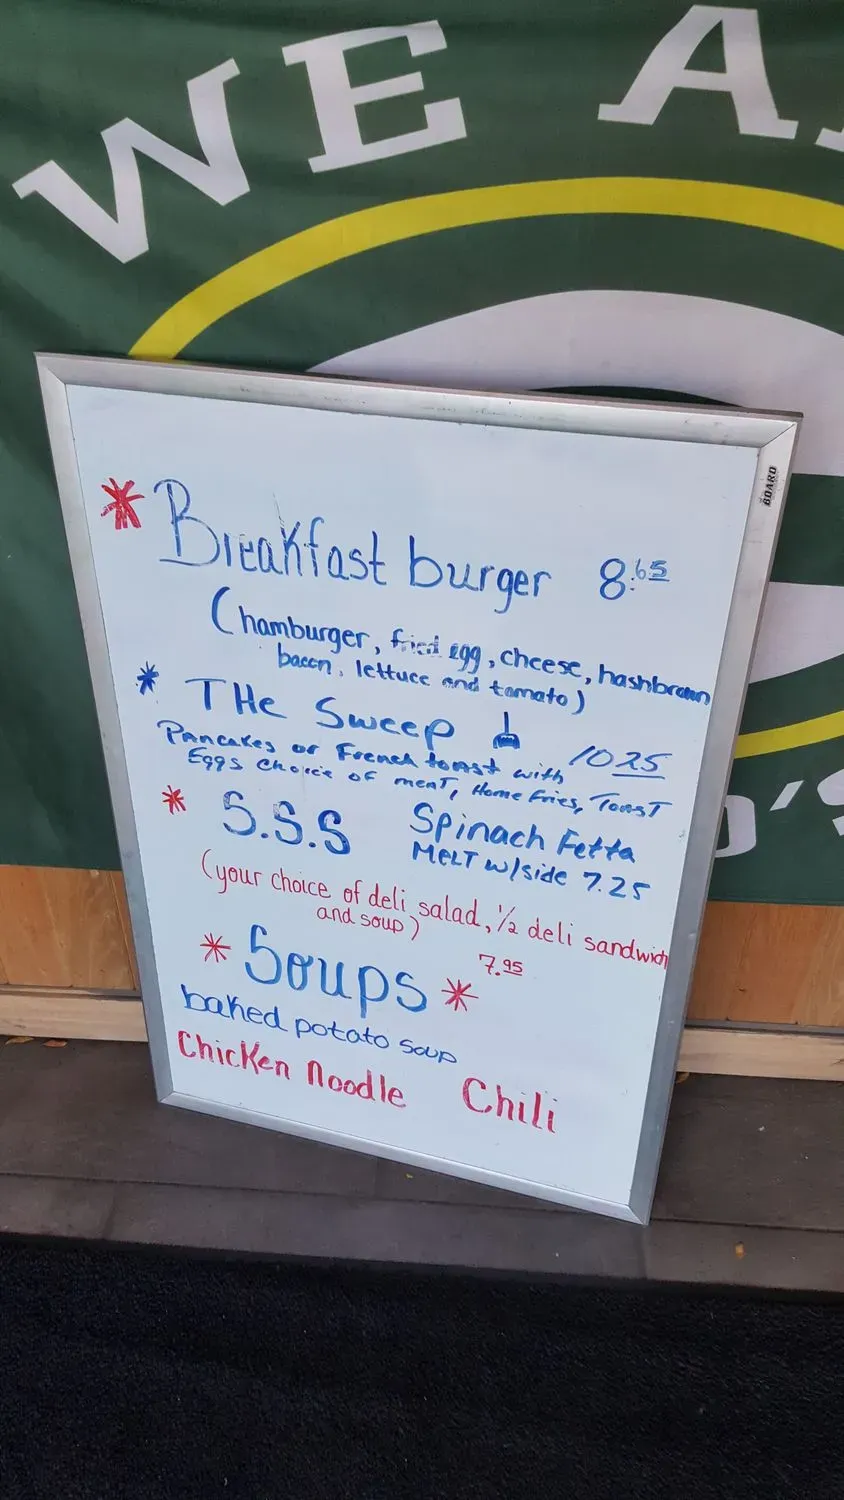 WE A
BOARD
* Breakfast burger 8.65
(hamburger, fried egg, cheese, hashbrown
bacon, lettuce and tomato)
* THe Sweep 1025
Pancakes or French toast with
Eggs choice of meat, Home Fries, Toast
* S.S.S Spinach Fetta
MELT w/side 7.25
(your choice of deli salad, ½ deli sandwich
and soup)
7.95
* Soups *
baked potato soup
Chicken Noodle Chili